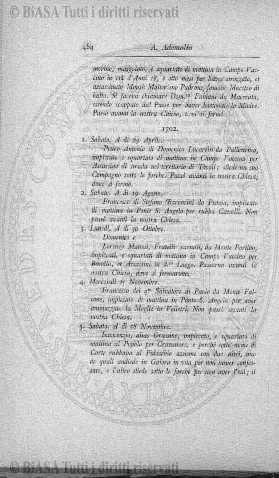 © BiASA Tutti i diritti riservati
484 A. Ademollo
mestino, mazzolato, e squartato di mattina in Campo Vac-
cino in età d'Anni 18, e altri mesi per havere strozzato, et
assassinato Mons. Padrone, famoso Maestro di
ballo. Si faceva chiamare Fabiani da Macerata,
essendo scappato dal Paese per havere bastonato la Madre.
Passò avanti la nostra Chiesa, e vi si fermò.
1702.
1. Sabato, A dì 29 Aprile.
Pietro Antonio di Domenico Lucarini da Palestrina,
impiccato, e squartato di mattina in Campo Vaccino per
Assassinii di strada nel territorio di Tivoli; diede un suo
Compagno sotto le forche. Passò avanti la nostra Chiesa,
dove si fermò.
2. Sabato, A dì 19 Agosto.
Francesco di Stefano da Pistoia, impiccato
di mattina in Ponte S. Angelo per rubba Cavalli. Non
passò avanti la nostra Chiesa.
3. Lunedì, A dì 30 Ottobre.
Domenico e
Lorenzo Mattei, Fratelli carnali, da Monte Fortino,
impiccati, e squartati di mattina in Campo Vaccino per
et Assassini in Passarono avanti la
nostra Chiesa, dove si fermarono.
4. Martedì Novembre.
Francesco del qm Salvatore di Paolo da Monte Fal-
cone, impiccato di mattina in Ponte S. Angelo per aver
ammazzato la Moglie in Velletri. Non passò avanti la
nostra Chiesa.
5. Sabato, A dì 18 Novembre.
Innocenzio, alias impiccato, e squartato di
mattina al Popolo per Grassature, e perchè sotto nome di
Corte rubbava al Palaschio assieme con due altri, uno
de quali andiede in Galera in vita per non haver confes-
sato, e l'altro diede sotto le forche per non aver l'età; il
© BiASA Tutti i diritti riservati